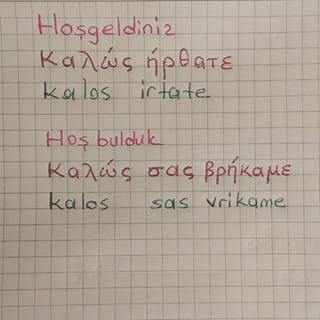 Hoşgeldiniz
Καλώς ήρθατε
kalos irtate
Hoş bulduk
Καλώς σας βρήκαμε
kalos sas vrikame